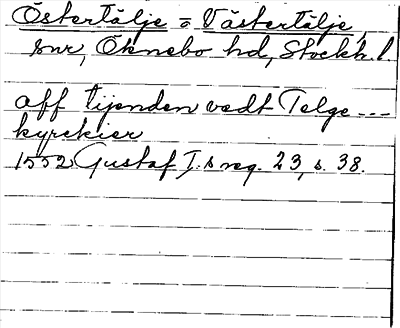 Östertälje = Västertälje,
snr, Öknebo hd, Stockh. l.
aff tijenden vedt Telge ---
kyrekier
1552 Gustaf I:s reg. 23, s. 38.